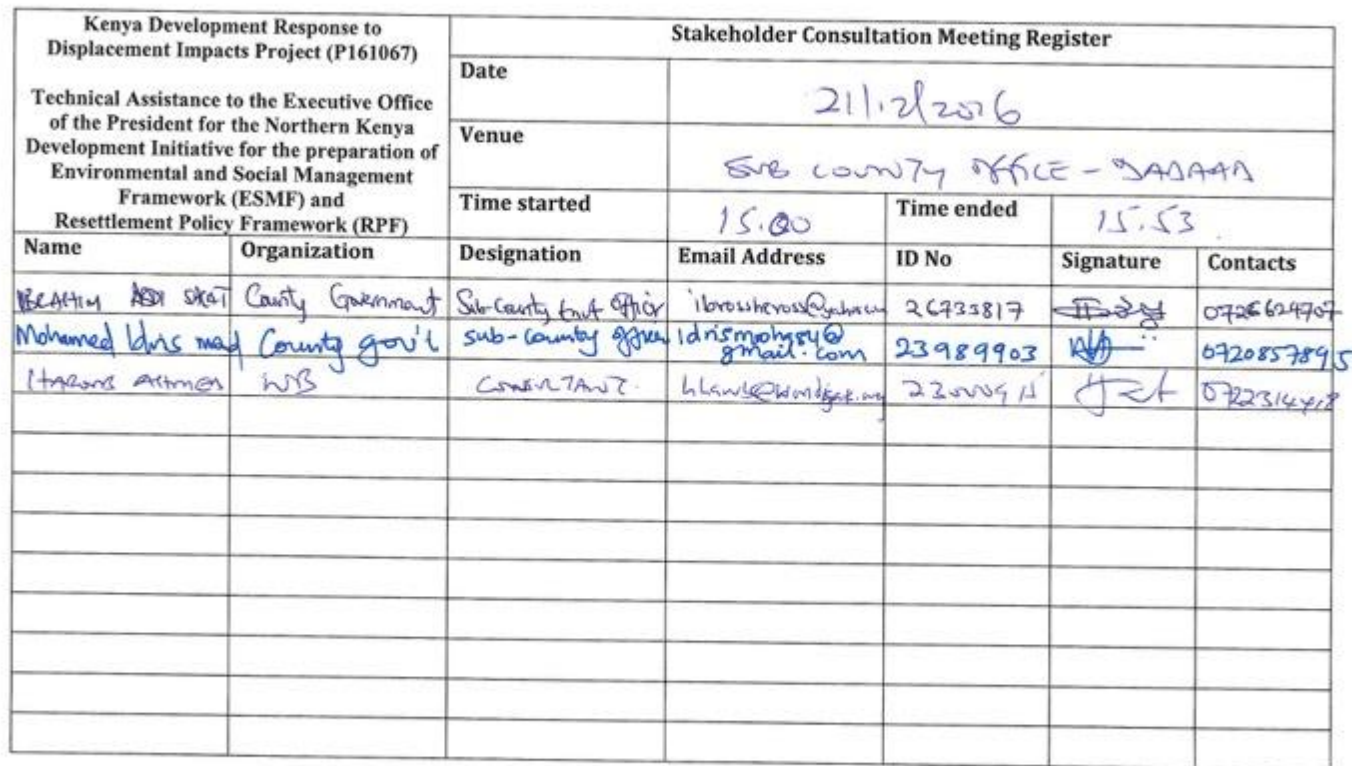 Kenya Development Response to
Displacement Impacts Project (P161067)
Technical Assistance to the Executive Office
of the President for the Northern Kenya
Development Initiative for the preparation of
Environmental and Social Management
Framework (ESMF) and
Resettlement Policy Framework (RPF)
Stakeholder Consultation Meeting Register
Date 21/12/2016
Venue SUB COUNTY OFFICE - DADAAB
Time started 15.00 Time ended 15.53
Name Organization Designation Email Address ID No Signature Contacts
IBRAHIM ABDI County Government Sub-County Officer 26735817 0726624707
Mohamed Idris County gov't sub-county idrismoha84@ 23989903 0720857895
gmail.com
WB CONSULTANT